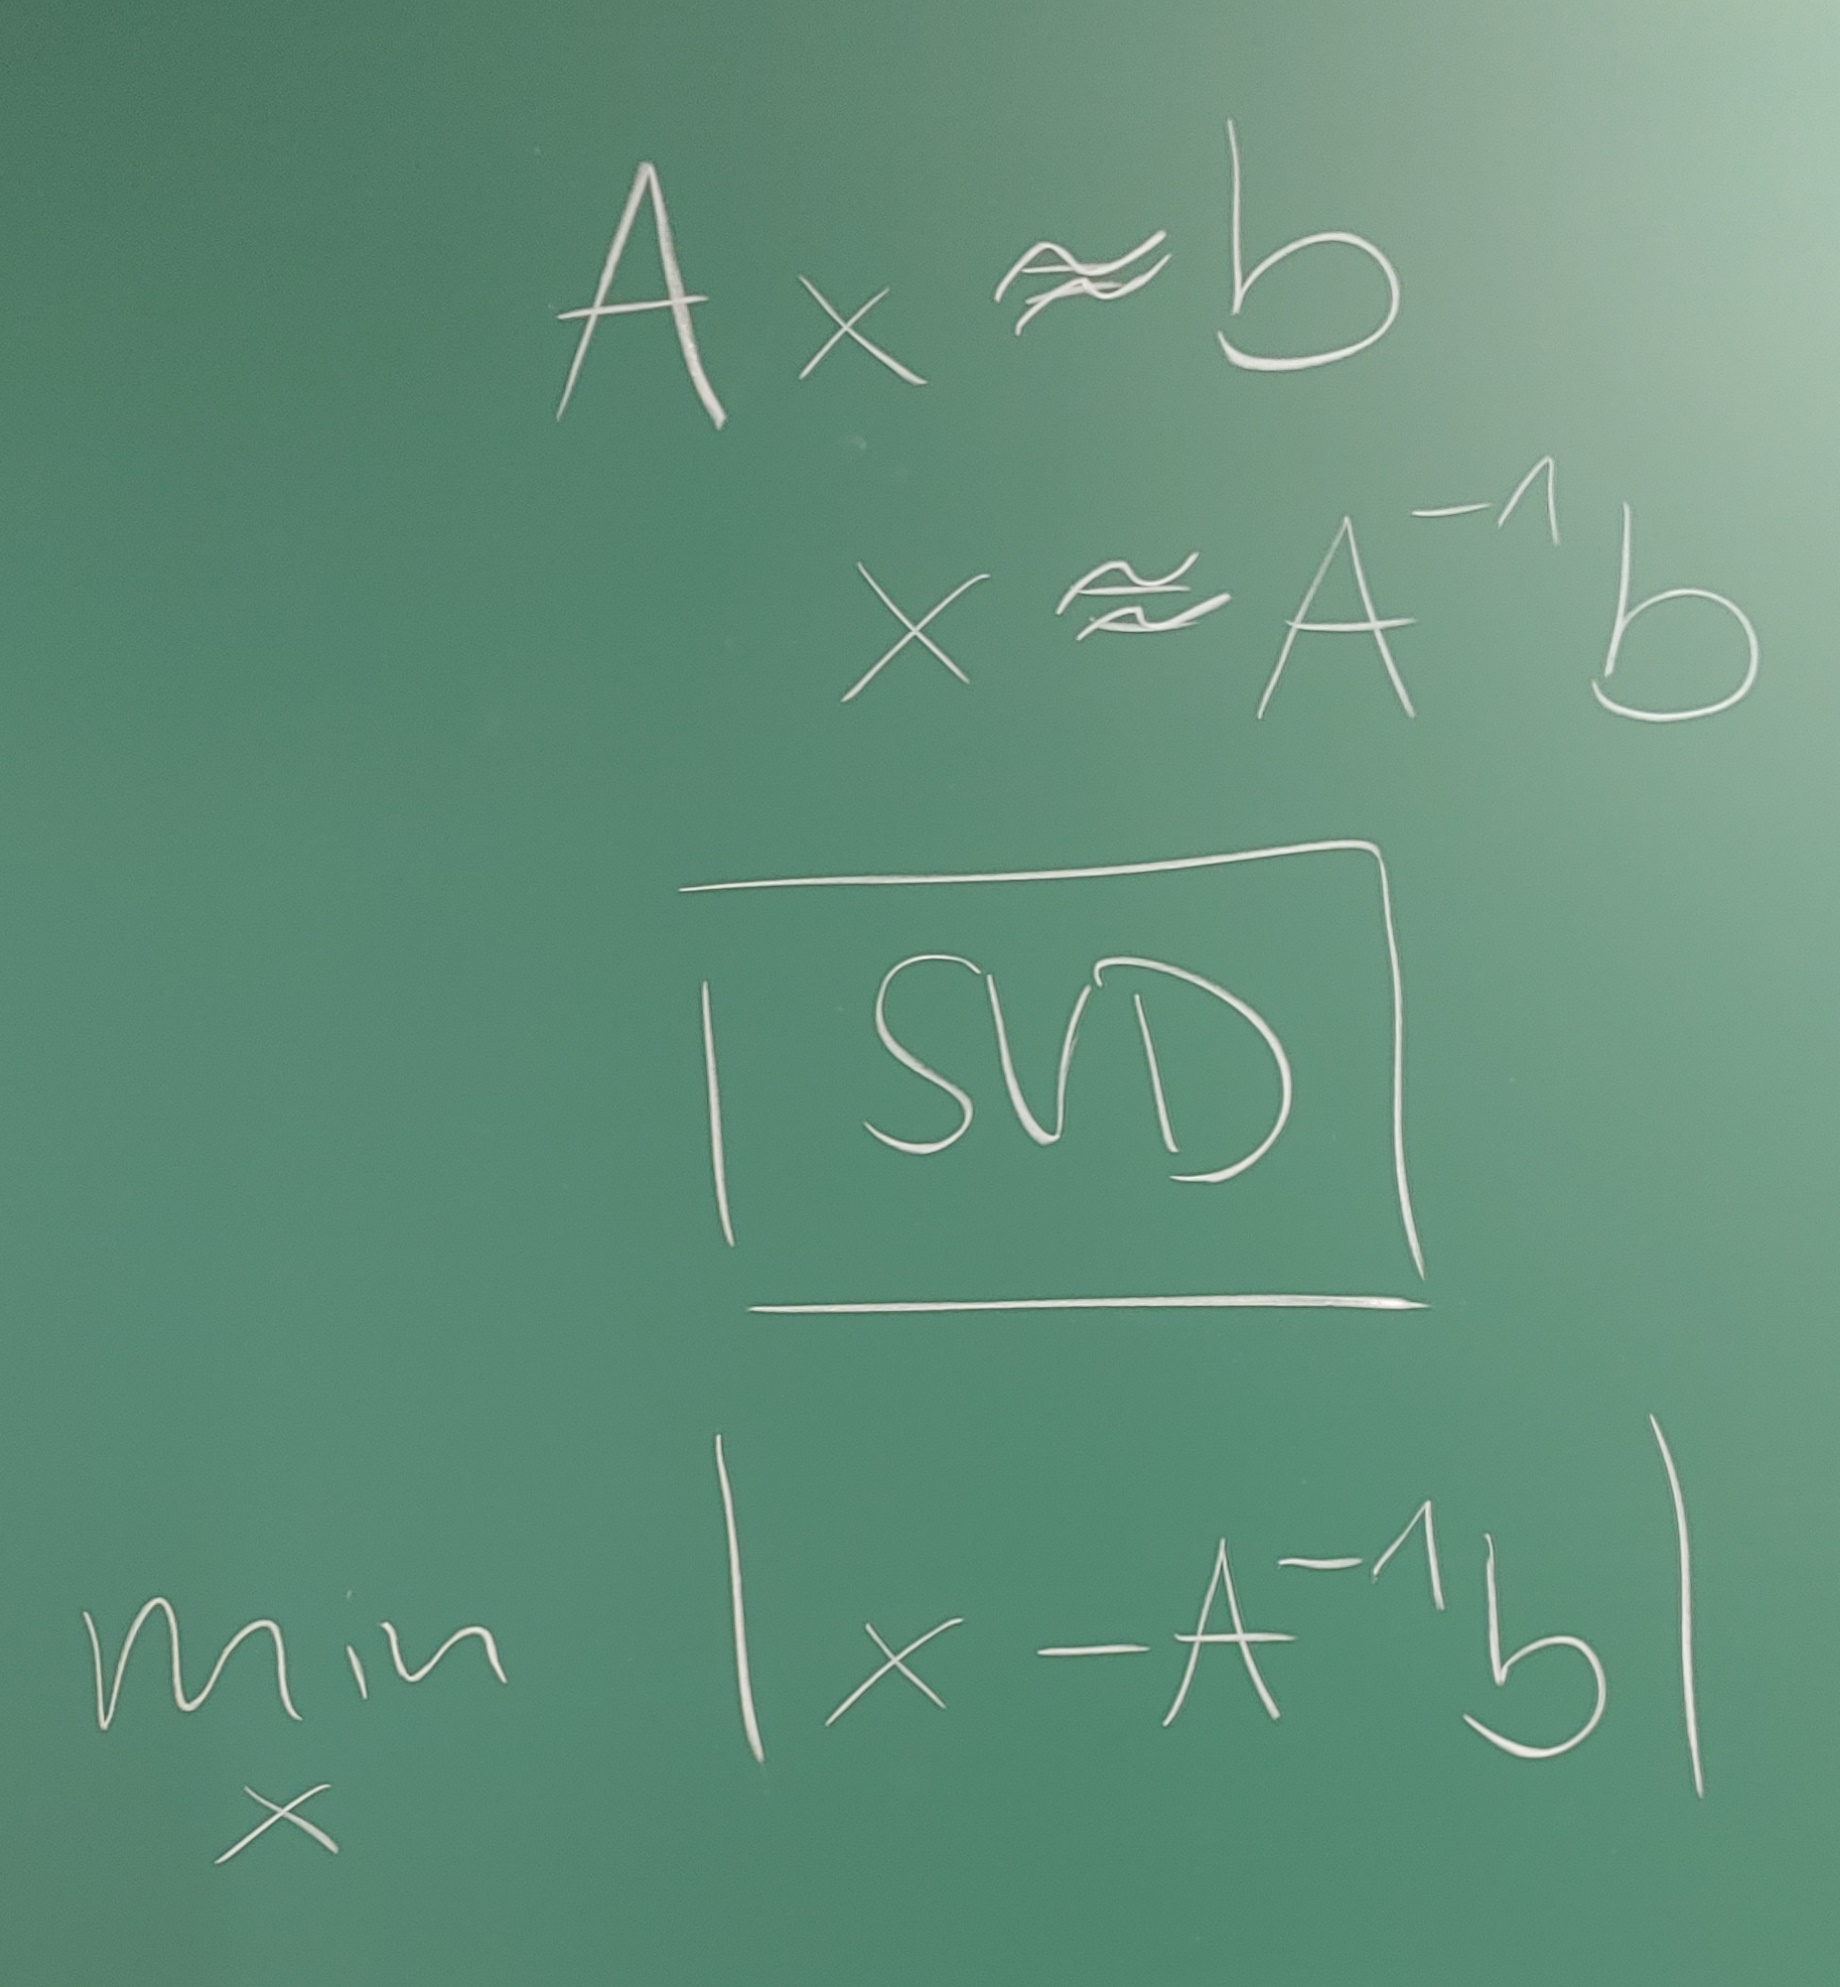 Ax ≈ b
x ≈ A⁻¹ b
SVD
min | x - A⁻¹ b |
x